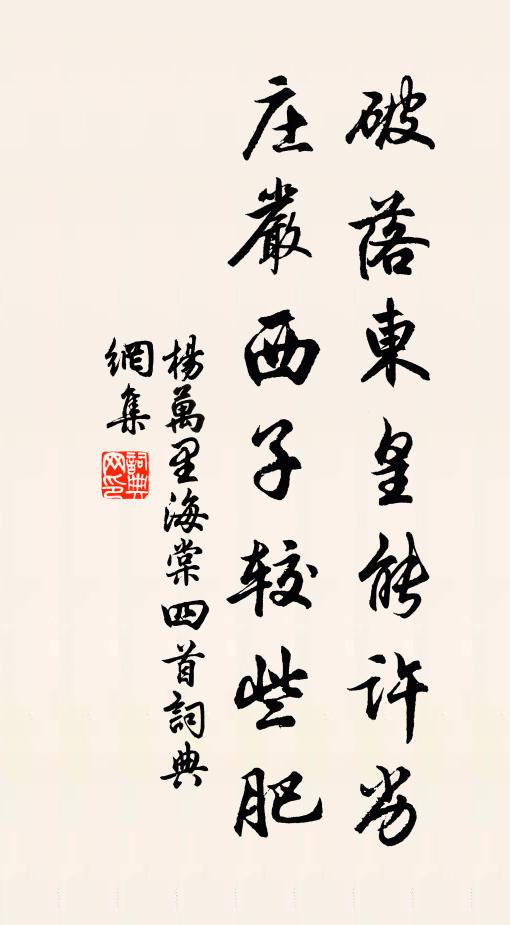 破落東皇能許劣
庄嚴西子較些肥
楊萬里海棠四首詞典
網集
詞典
网印